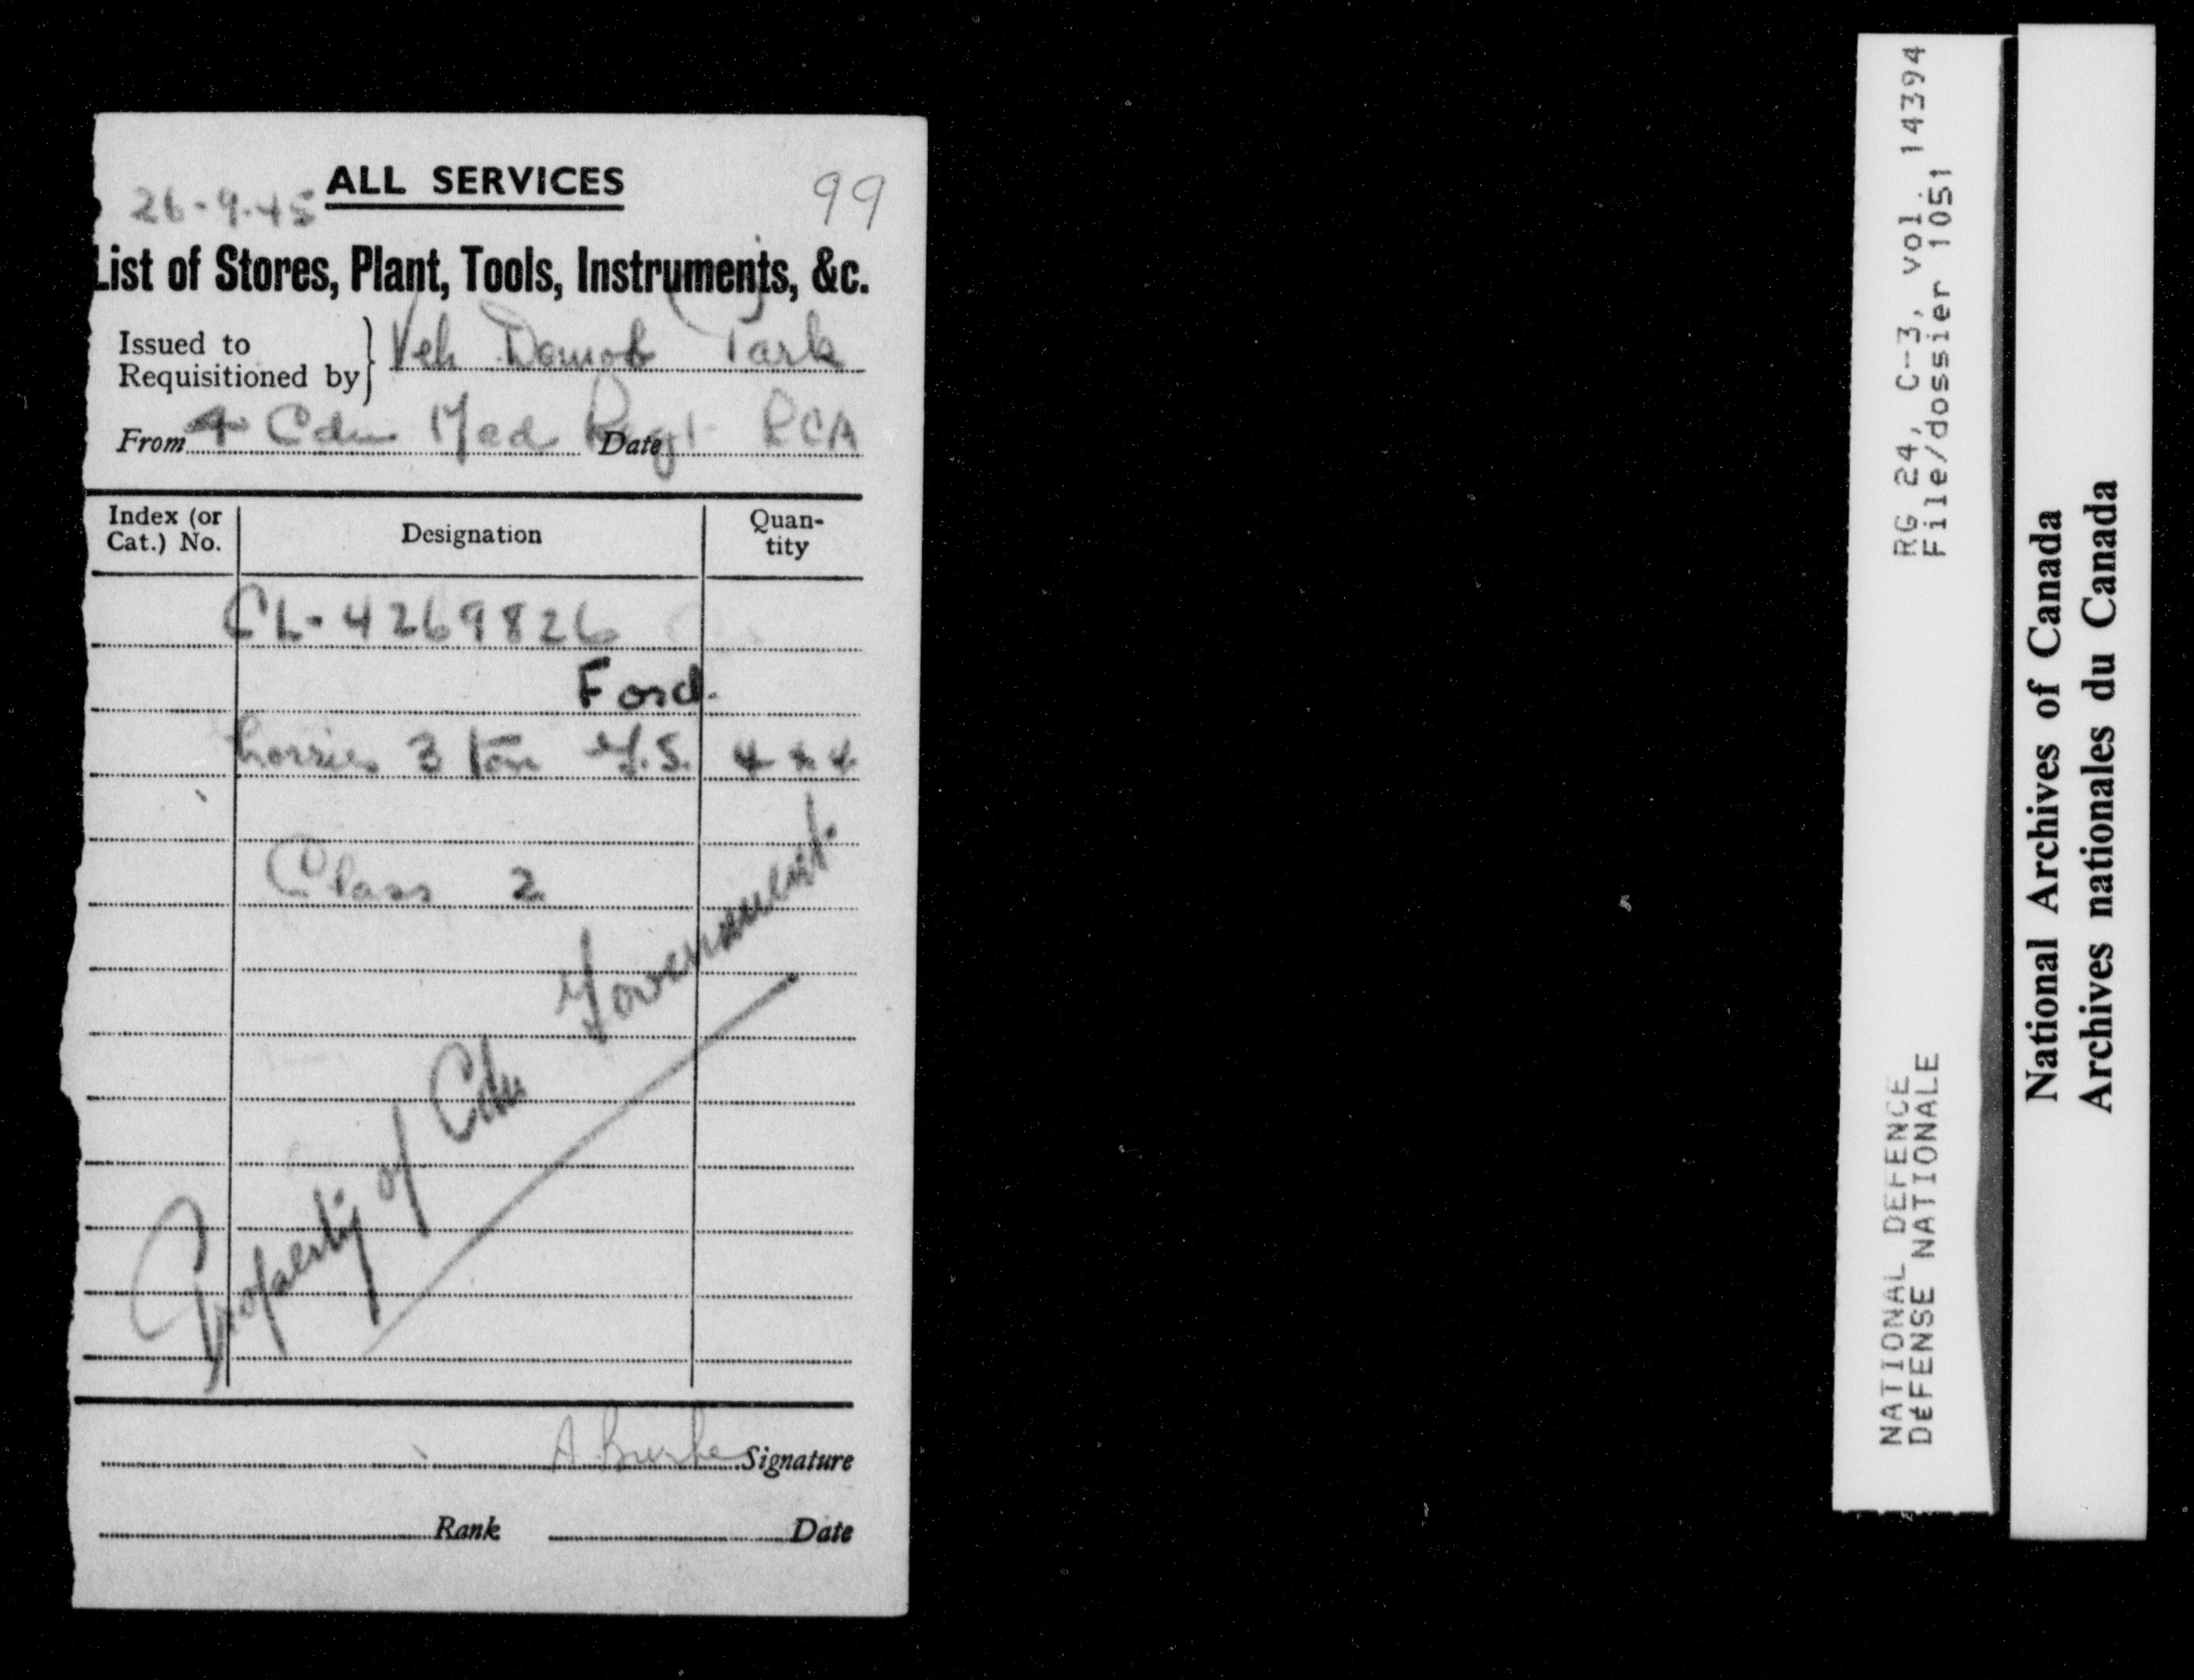 ALL SERVICES
26-9-45
99
List of Stores, Plant, Tools, Instruments, &c.
Issued to
Requisitioned by } Veh Demob Park
From 4 Cdn Med Regt RCA Date
Index (or Cat.) No. Designation Quantity
CL-4269826
Ford.
Lorries 3 ton G.S. 4 x 4
Class 2
Property of Cdn Government
A. Burke Signature
Rank Date
RG 24, C-3, vol. 14394
File/dossier 1051
NATIONAL DEFENCE
DÉFENSE NATIONALE
National Archives of Canada
Archives nationales du Canada